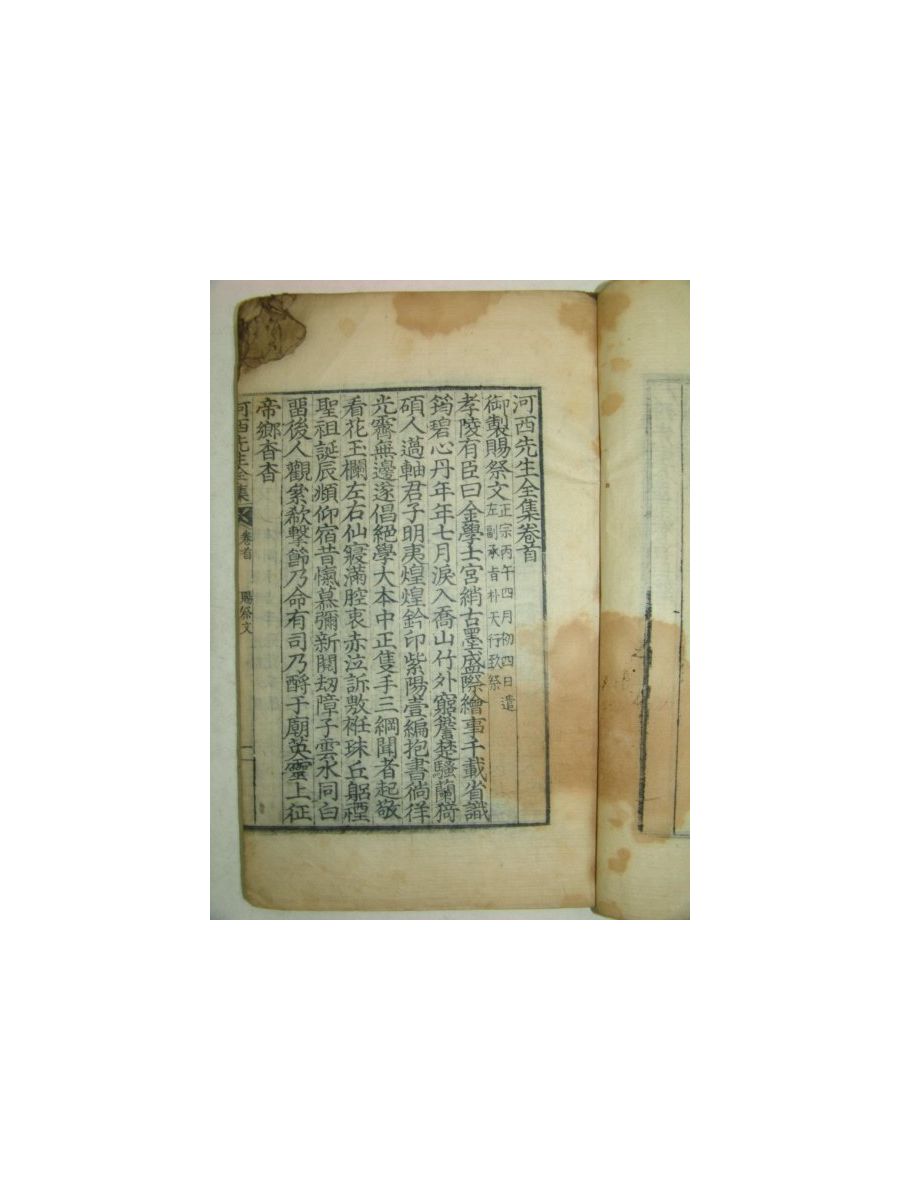 河西先生全集卷首
御製賜祭文 正宗丙午四月初四日遣
左副承旨朴天行致祭
孝陵有臣曰金學士宮綃古墨盛際繪事千載省識
筠碧心丹年年七月淚入喬山竹外窮簷楚騷蘭猗
碩人薖軸君子明夷煌煌鈐印紫陽壹編抱書徜徉
光霽無邊遂倡絕學大本中正隻手三綱聞者起敬
看花玉欄左右仙寢滿腔衷赤泣訴敷衽珠丘躬禋
聖祖誕辰頫仰宿昔愾慕彌新閱劫障子雲水同白
畱後人觀案欷擊節乃命有司乃酹于廟英靈上征
帝鄉杳杳
河西先生全集 卷首 賜祭文 一